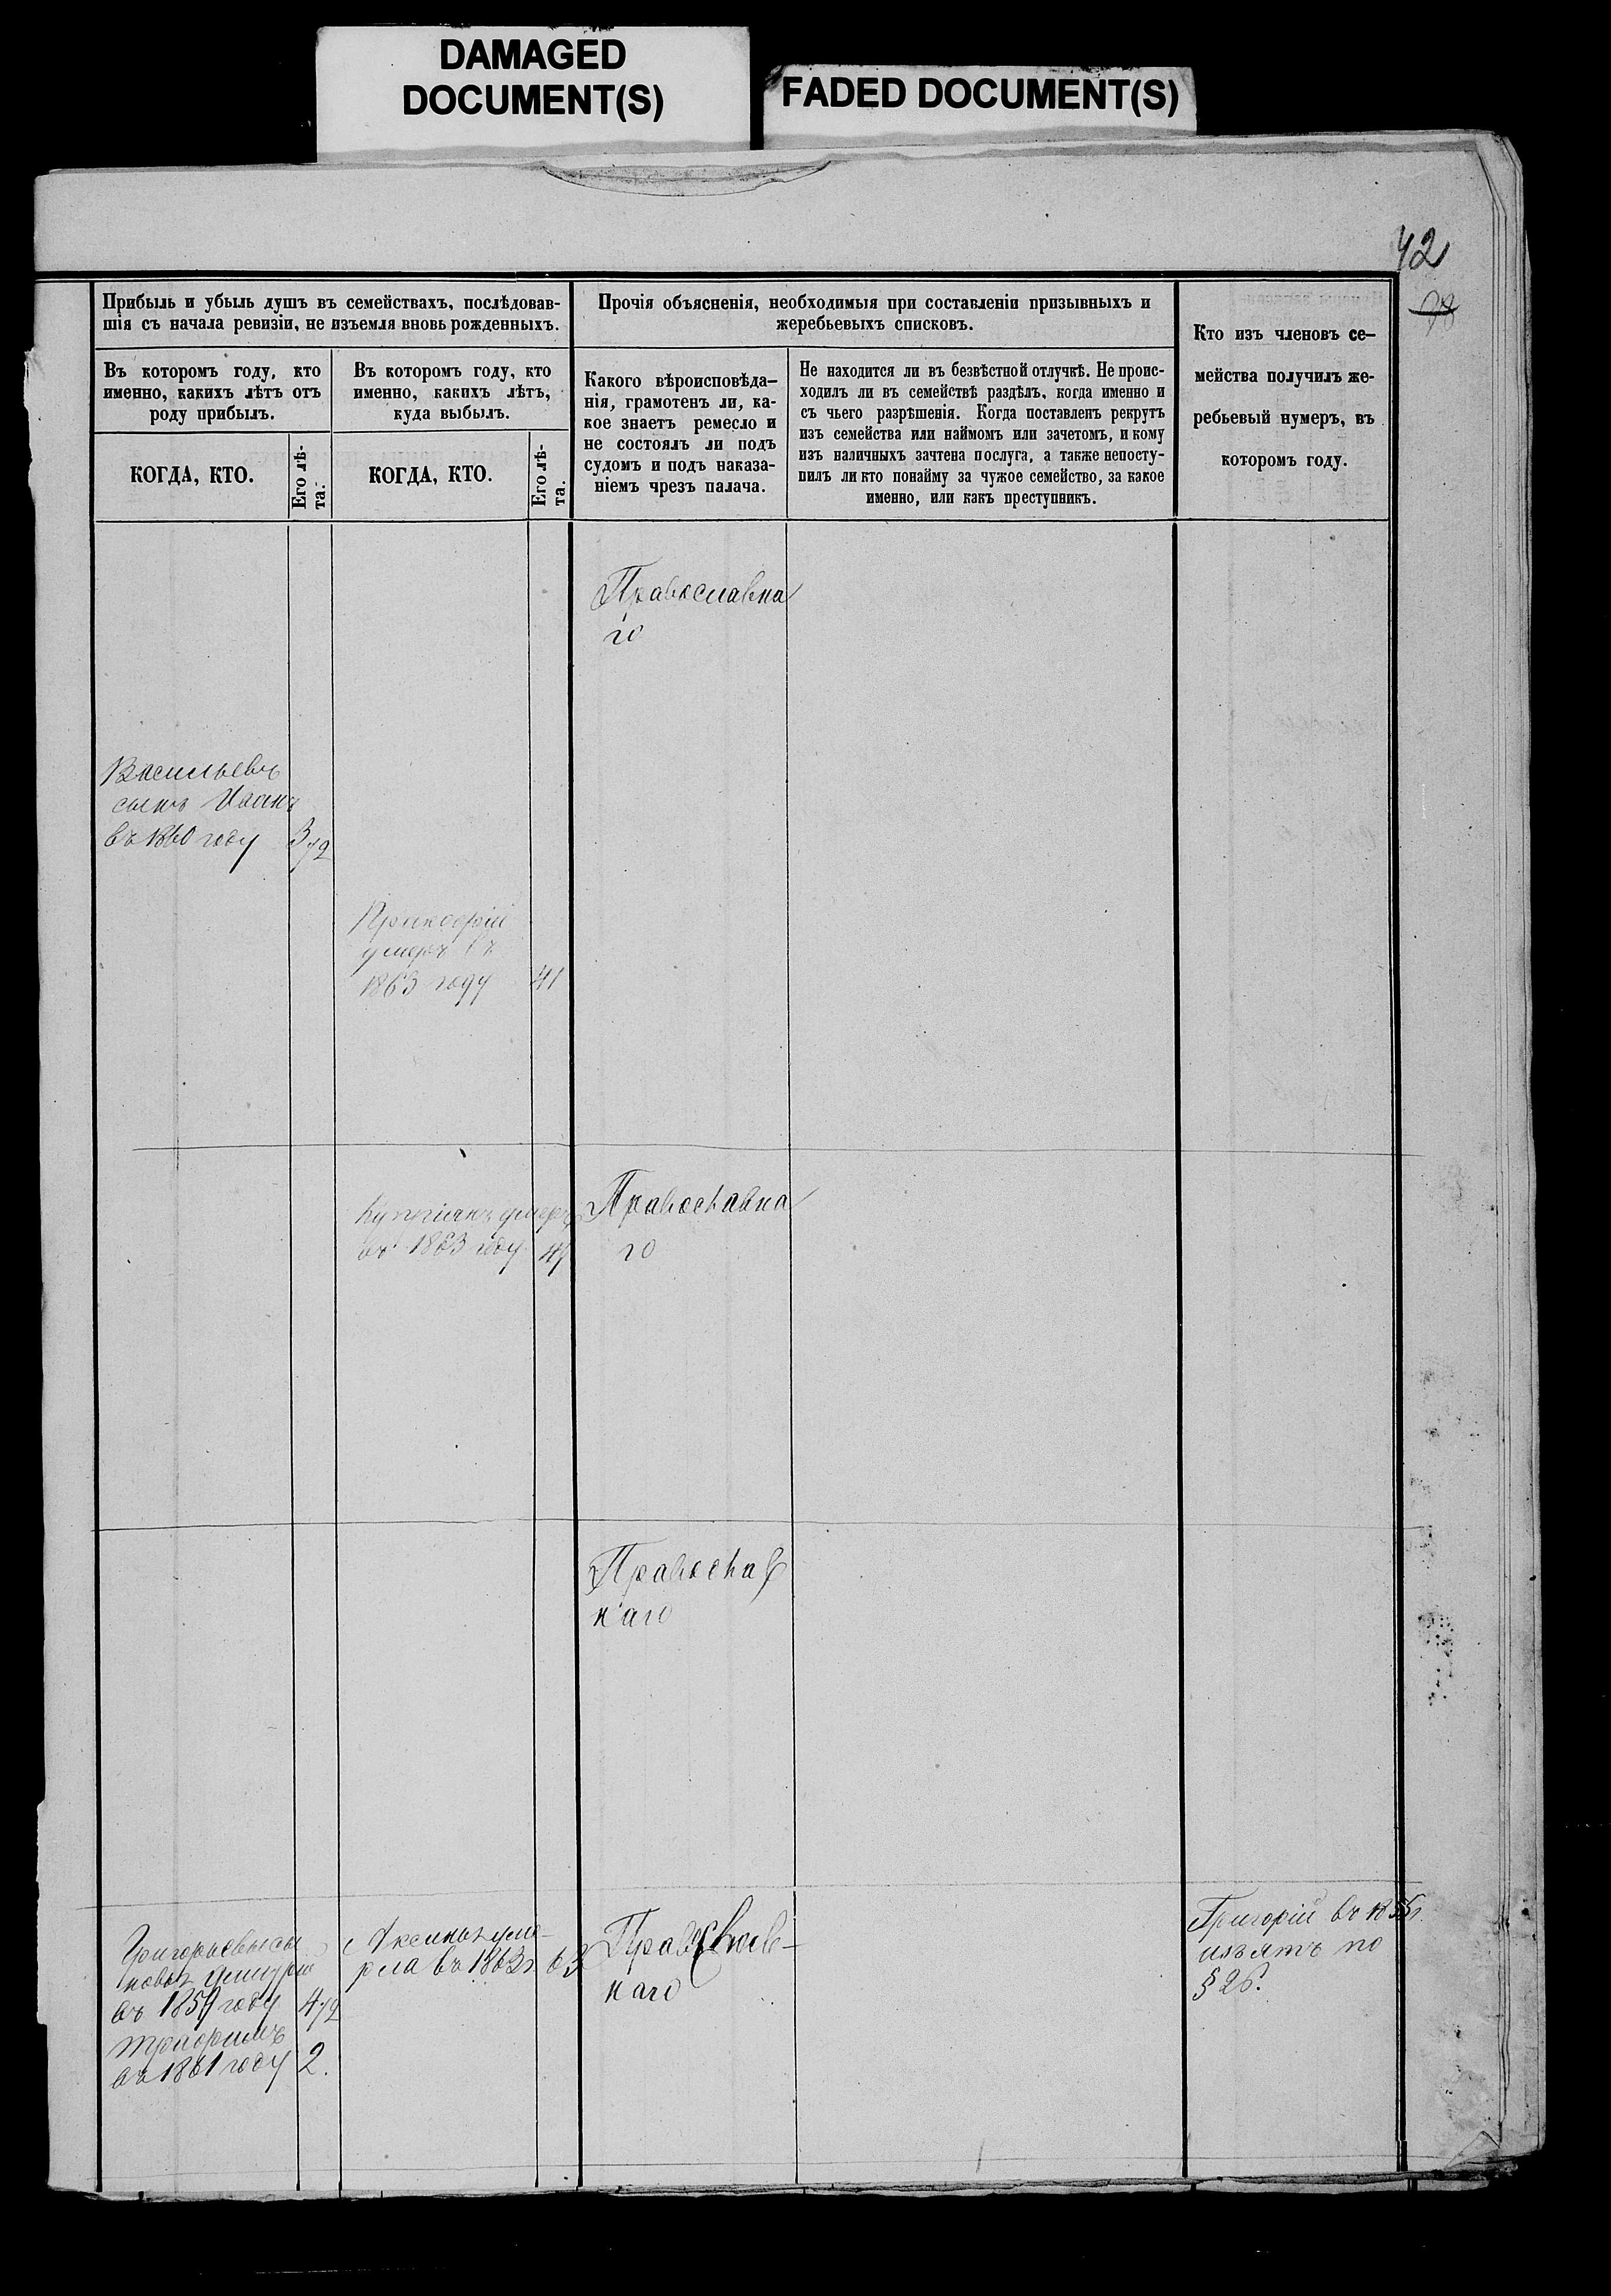 DAMAGED
DOCUMENT(S)
FADED DOCUMENT(S)
42
Прибыль и убыль душъ въ семействахъ, послѣдовав-
шія съ начала ревизіи, не изъемля вновь рожденныхъ.
Въ которомъ году, кто
именно, какихъ лѣтъ отъ
роду прибылъ.
КОГДА, КТО.
Его лѣ-
та.
Въ которомъ году, кто
именно, какихъ лѣтъ,
куда выбылъ.
КОГДА, КТО.
Его лѣ-
та.
Прочія объясненія, необходимыя при составленіи призывныхъ и
жеребьевыхъ списковъ.
Какого вѣроисповѣда-
нія, грамотенъ ли, ка-
кое знаетъ ремесло и
не состоялъ ли подъ
судомъ и подъ наказа-
ніемъ чрезъ палача.
Не находится ли въ безвѣстной отлучкѣ. Не проис-
ходилъ ли въ семействѣ раздѣлъ, когда именно и
съ чьего разрѣшенія. Когда поставленъ рекрутъ
изъ семейства или наймомъ или зачетомъ, и кому
изъ наличныхъ зачтена послуга, а также непосту-
пилъ ли кто понайму за чужое семейство, за какое
именно, или какъ преступникъ.
Кто изъ членовъ се-
мейства получилъ же-
ребьевый нумеръ, въ
которомъ году.
Православна
го
Васильевъ
сынъ Иванъ
въ 1860 году 3 1/2
умеръ въ
1863 году 41
Купріянъ умеръ
въ 1863 году
Православна
го
Православ
наго
Григорьевы сы
новья
въ 1859 году 4 1/2
въ 1861 году 2.
Аксинья уме-
рла въ 1863 г 63
Православ-
наго
Григорій въ 1855 г.
изъятъ по
§ 26.